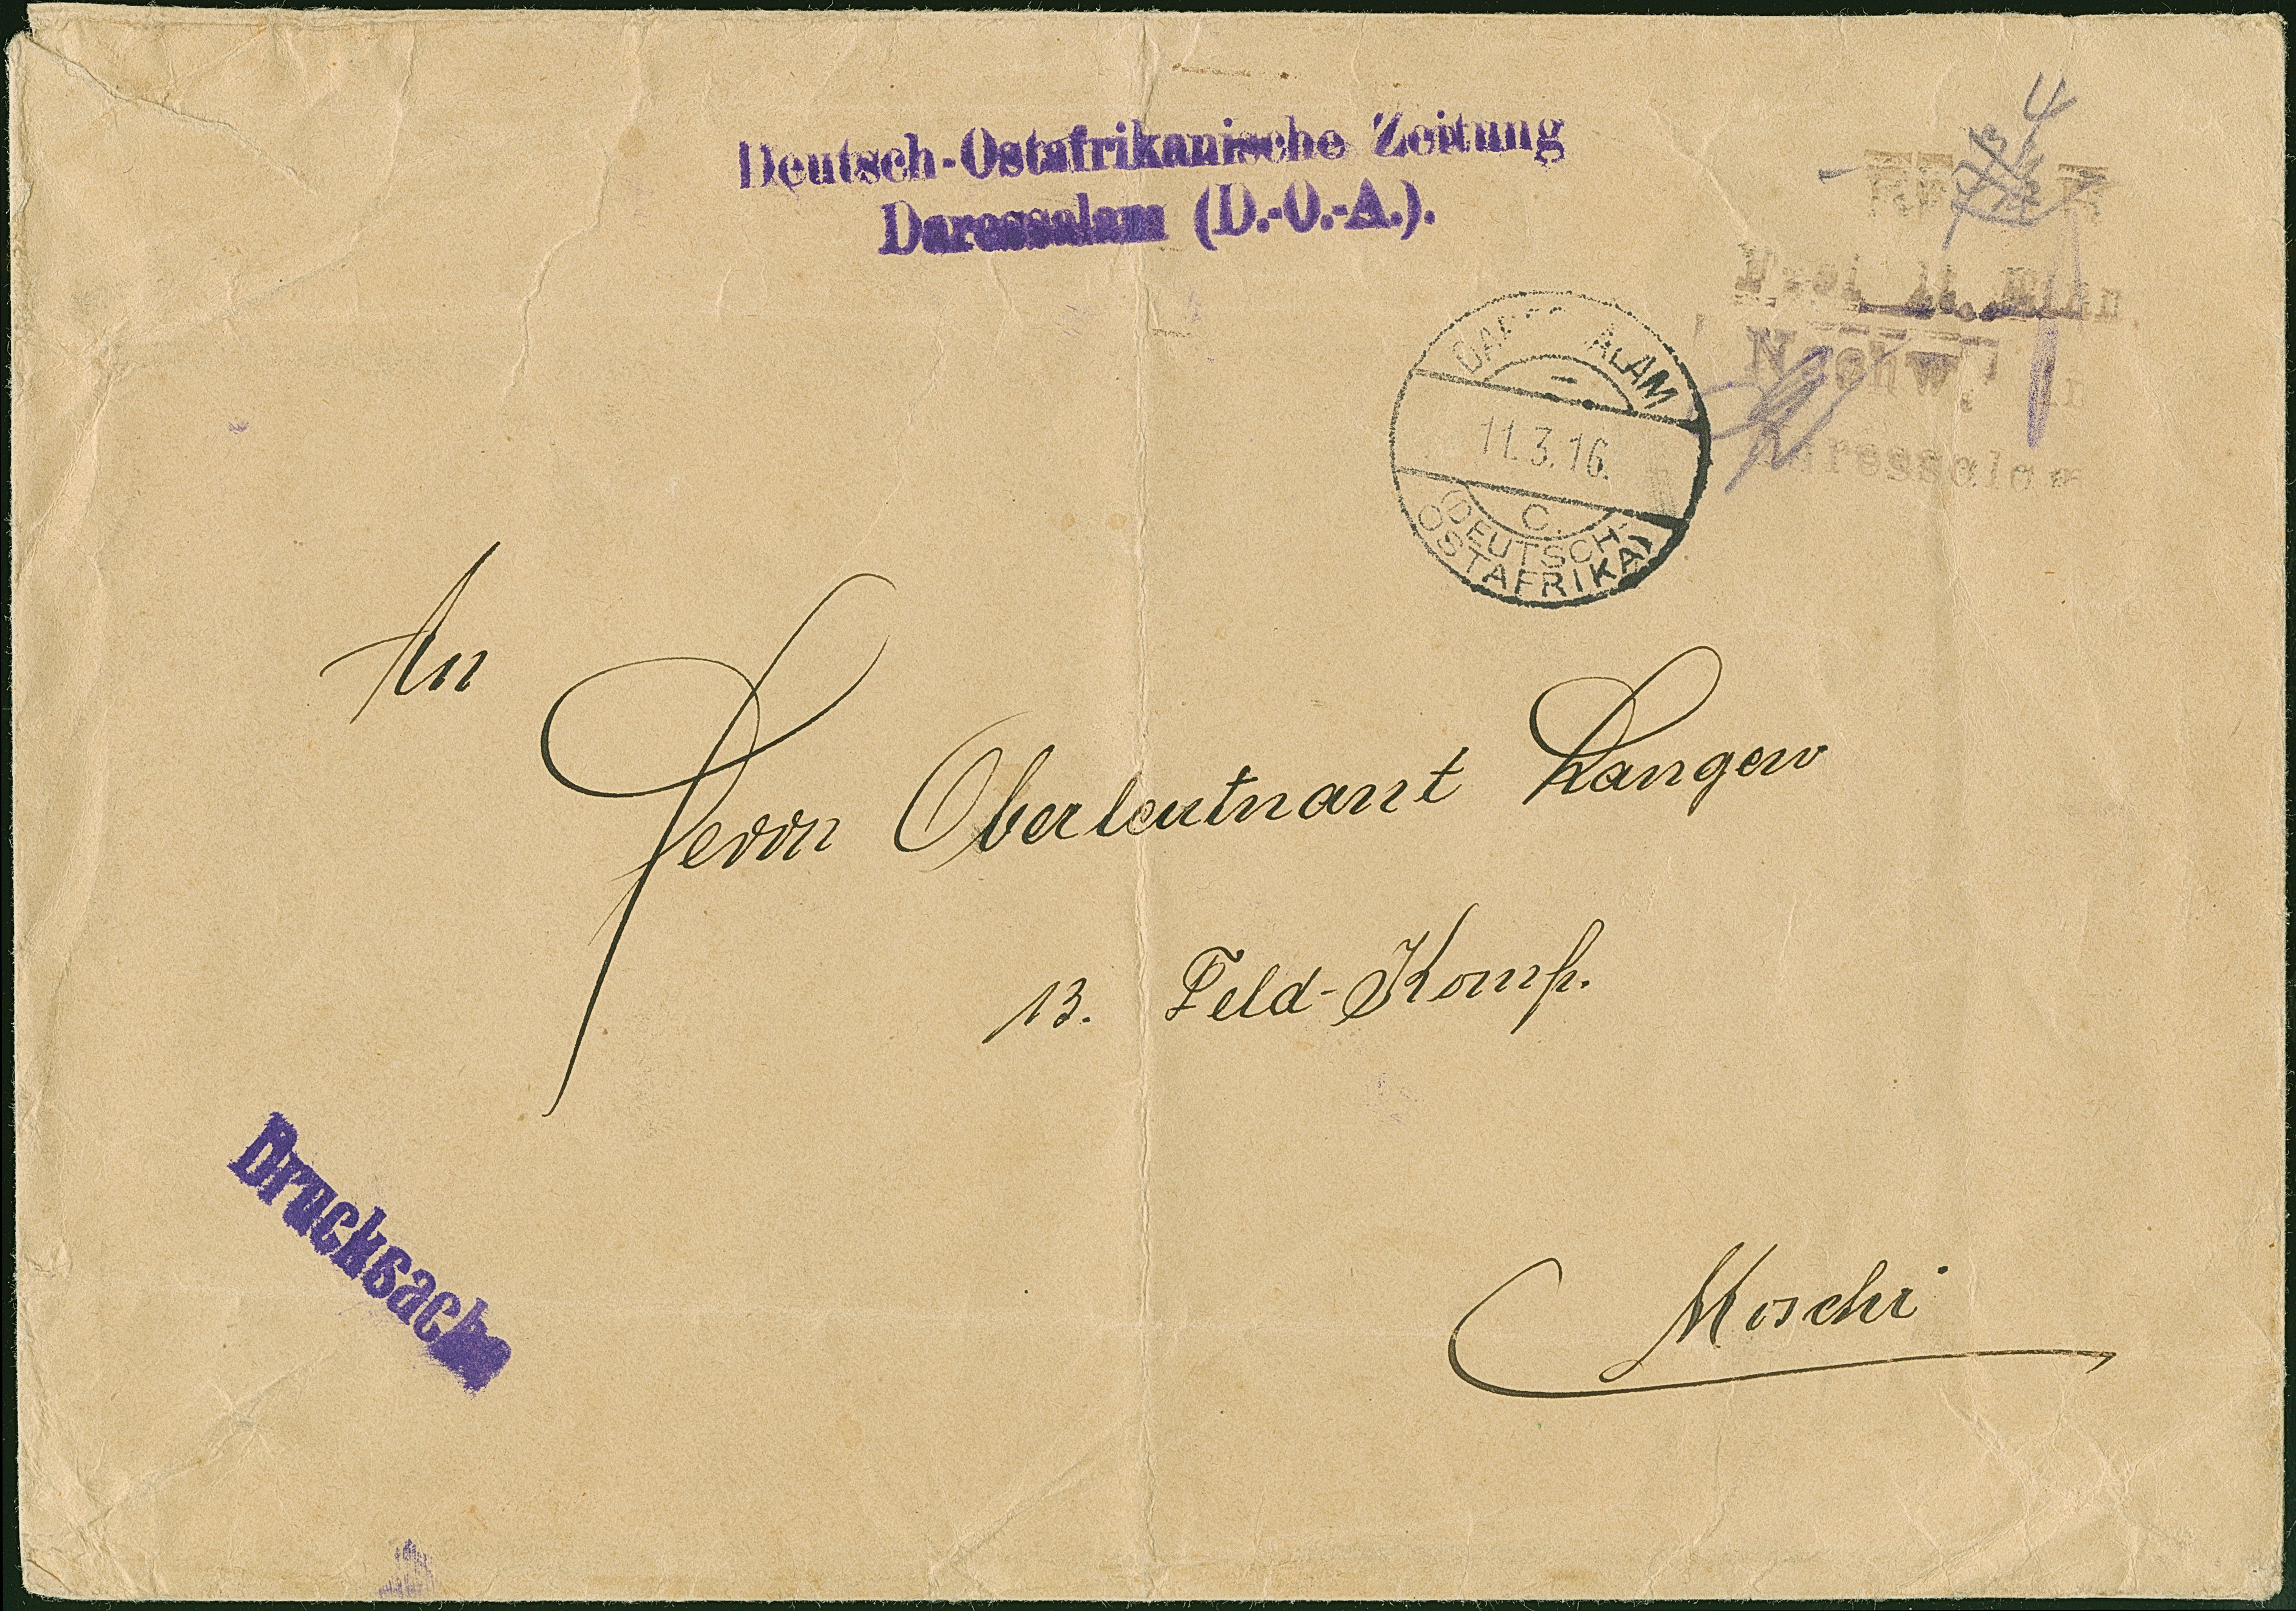 Deutsch-Ostafrikanische Zeitung
Daressalam (D.-O.-A.).
4
Frei lt. Einn.
Nachw. in
Daressalam
DARESSALAM
11.3.16.
C.
(DEUTSCH-
OSTAFRIKA)
An
Herrn Oberleutnant Langen
13. Feld-Komp.
Moschi
Drucksache